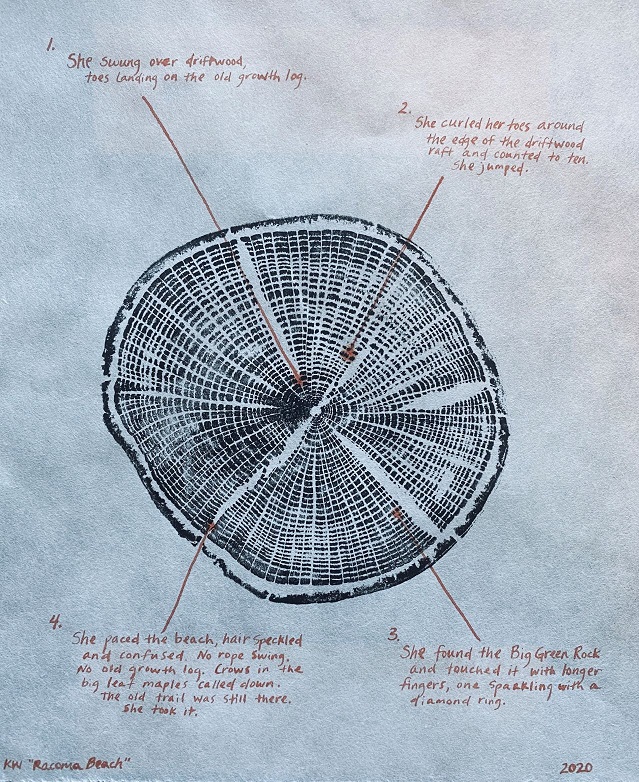 1.
She swung over driftwood,
toes landing on the old growth log.
2.
She curled her toes around
the edge of the driftwood
raft and counted to ten.
She jumped.
3.
She found the Big Green Rock
and touched it with longer
fingers, one sparkling with a
diamond ring.
4.
She paced the beach, hair speckled
and confused. No rope swing.
No old growth log. Crows in the
big leaf maples called down.
The old trail was still there.
She took it.
KW "Racoma Beach"
2020